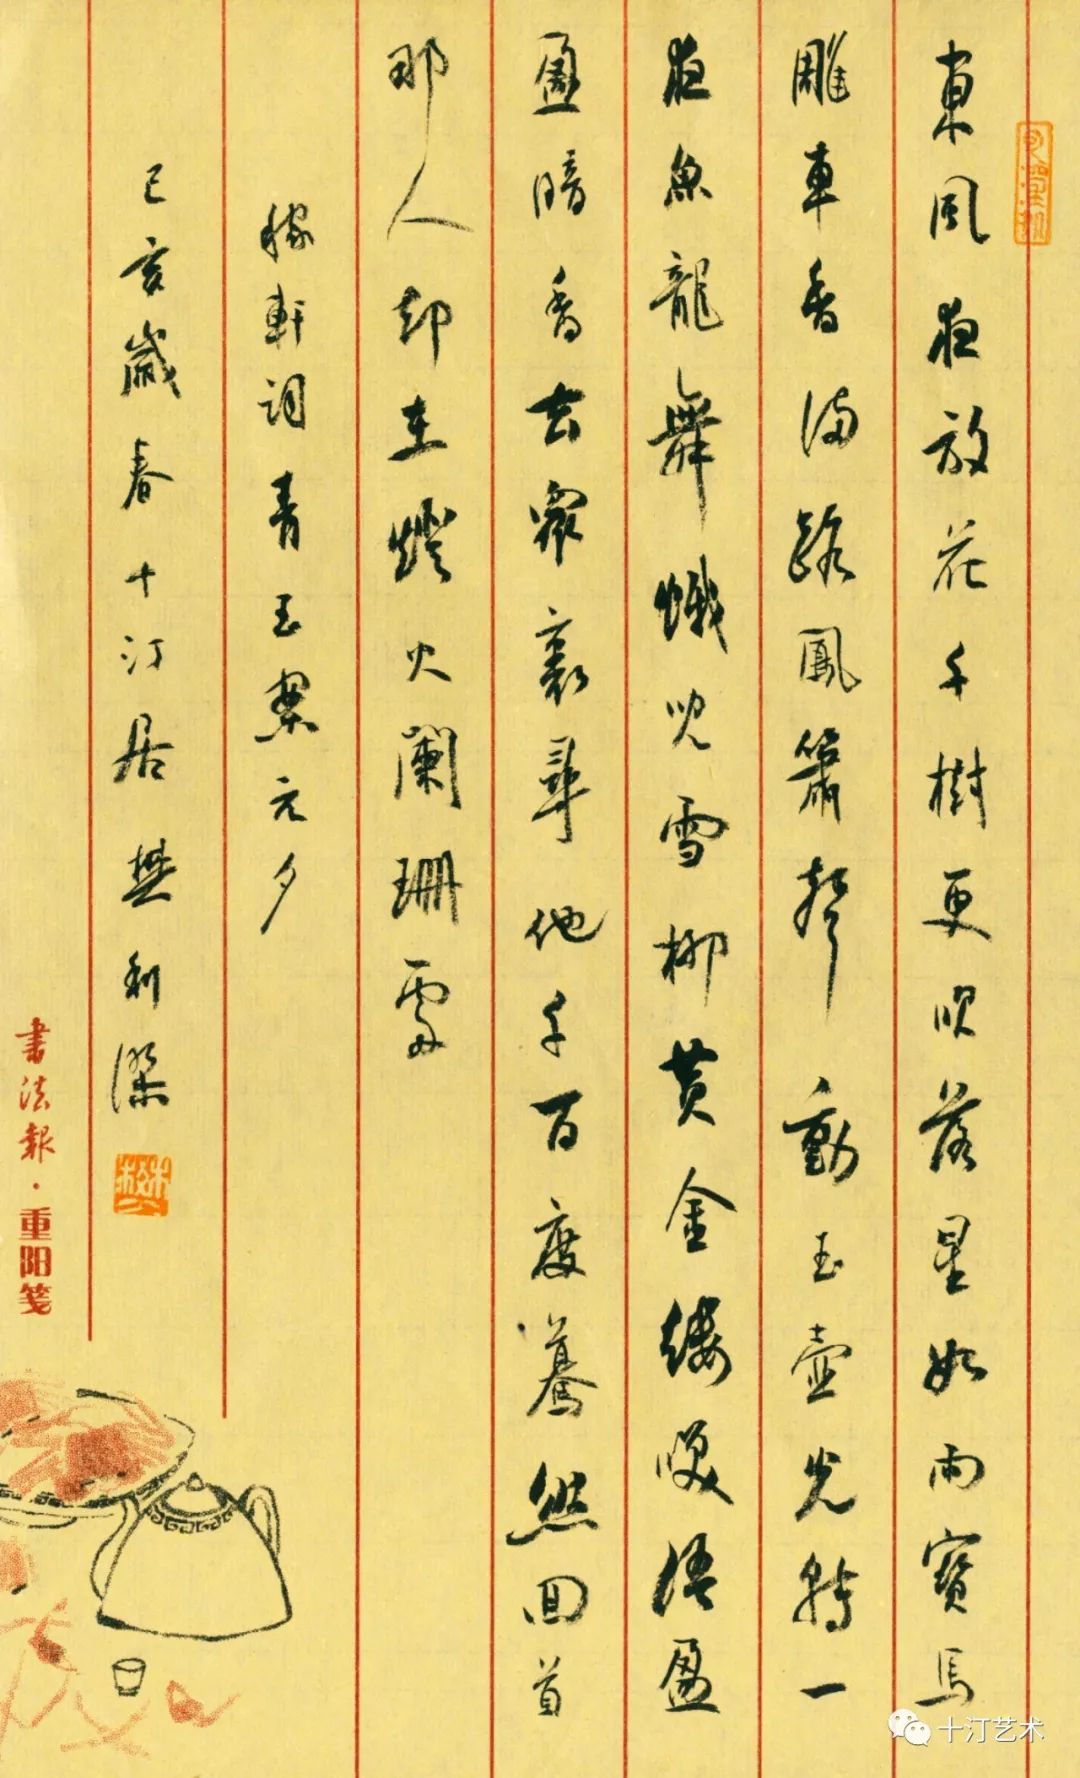 東風夜放花千樹更吹落星如雨寶馬
雕車香滿路鳳簫聲動玉壺光轉一
夜魚龍舞蛾兒雪柳黄金縷笑語盈
盈暗香去衆裏尋他千百度驀然回首
那人却在燈火闌珊處
稼軒詞青玉案元夕
己亥歲春十汀居樊利傑
書法報·重阳笺
十汀艺术